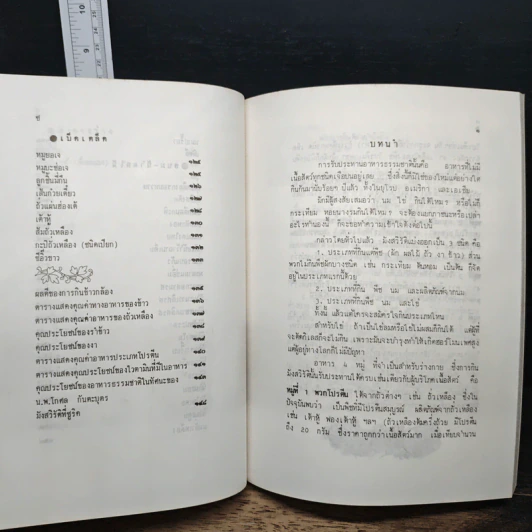 10
9
ซ
เบ็ดเตล็ด
หมูยอเจ
หมูมะช่อเจ
ลูกชิ้นพี่กัน
เส้นก๋วยเตี๋ยว
ถั่วแผ่นฮ่องเต้
เต้าหู้
ส้มถั่วเหลือง
กะปิถั่วเหลือง (ชนิดเปียก)
ซีอิ๊วขาว
ผลดีของการกินข้าวกล้อง
ตารางแสดงคุณค่าทางอาหารของข้าว
ตารางแสดงคุณค่าอาหารของถั่วเหลือง
คุณประโยชน์ของรำข้าว
คุณประโยชน์ของงา
ตารางแสดงค่าอาหารประเภทโปรตีน
คุณประโยชน์ของไวตามินที่มีในอาหาร
คุณประโยชน์ของอาหารธรรมชาติในทัศนะของ
น.พ.โกศล กันตะบุตร
มังสวิรัติที่ซูริค
บทนำ
การรับประทานอาหารธรรมชาตินั้นคือ อาหารที่ไม่มี
เนื้อสัตว์ทุกชนิดเจือปนอยู่เลย ซึ่งสิ่งนี้ก็มิใช่ของใหม่แต่อย่างใด
กินกันมานับร้อยๆ ปีแล้ว ทั้งในยุโรป อเมริกา และเอเชีย
มักมีผู้สงสัยเสมอว่า นม ไข่ กินได้ไหม? หรือไม่ก็
กระเทียม หอมบางรมกินได้ไหม? จะต้องเอกภาชนะหรือเปล่า
อะไรทำนองนี้ ก็จะขอทำความเข้าใจดังต่อไปนี้
กล่าวโดยทั่วไปแล้ว มังสวิรัติแบ่งออกเป็น ๓ ชนิด คือ
1. ประเภทที่กินแต่พืช (ผัก ผลไม้ ถั่ว งา ข้าว) ส่วน
พวกไม่กินพืชผักบางชนิด เช่น กระเทียม ต้นหอม เป็นต้น ก็จัด
อยู่ในประเภทแรกนี้ด้วย
2. ประเภทที่กินพืช นม และผลิตภัณฑ์จากนม
3. ประเภทที่กินพืช นม และไข่
ทั้งนี้ แล้วแต่ใครจะสมัครใจกินประเภทไหน
สำหรับไข่ ถ้าเป็นไข่ลมหรือไข่ไม่ผสมก็กินได้ แต่ผู้ที่
จะตัดกิเลสก็ไม่ควรจะกิน เพราะมันจะบำรุงทำให้เกิดฮอร์โมนเพศสูง
แต่ผู้อยู่ทางโลกก็ไม่มีปัญหา
อาหาร ๕ หมู่ ที่จำเป็นสำหรับร่างกาย ซึ่งการกิน
มังสวิรัตินั้นรับประทานได้ครบเช่นเดียวกับผู้บริโภคเนื้อสัตว์ คือ
หมู่ที่ 1 พวกโปรตีน ได้จากถั่วต่างๆ เช่น ถั่วเหลือง ซึ่งใน
ปัจจุบันพบว่า เป็นพืชที่มีโปรตีนสมบูรณ์ ผลิตภัณฑ์จากถั่วเหลือง
เช่น เต้าหู้ ฟองเต้าหู้ ฯลฯ (ถั่วเหลืองต้มครึ่งถ้วย มีโปรตีน
ถึง 20 กรัม ซึ่งราคาถูกกว่าเนื้อสัตว์มาก เมื่อเทียบจำนวน